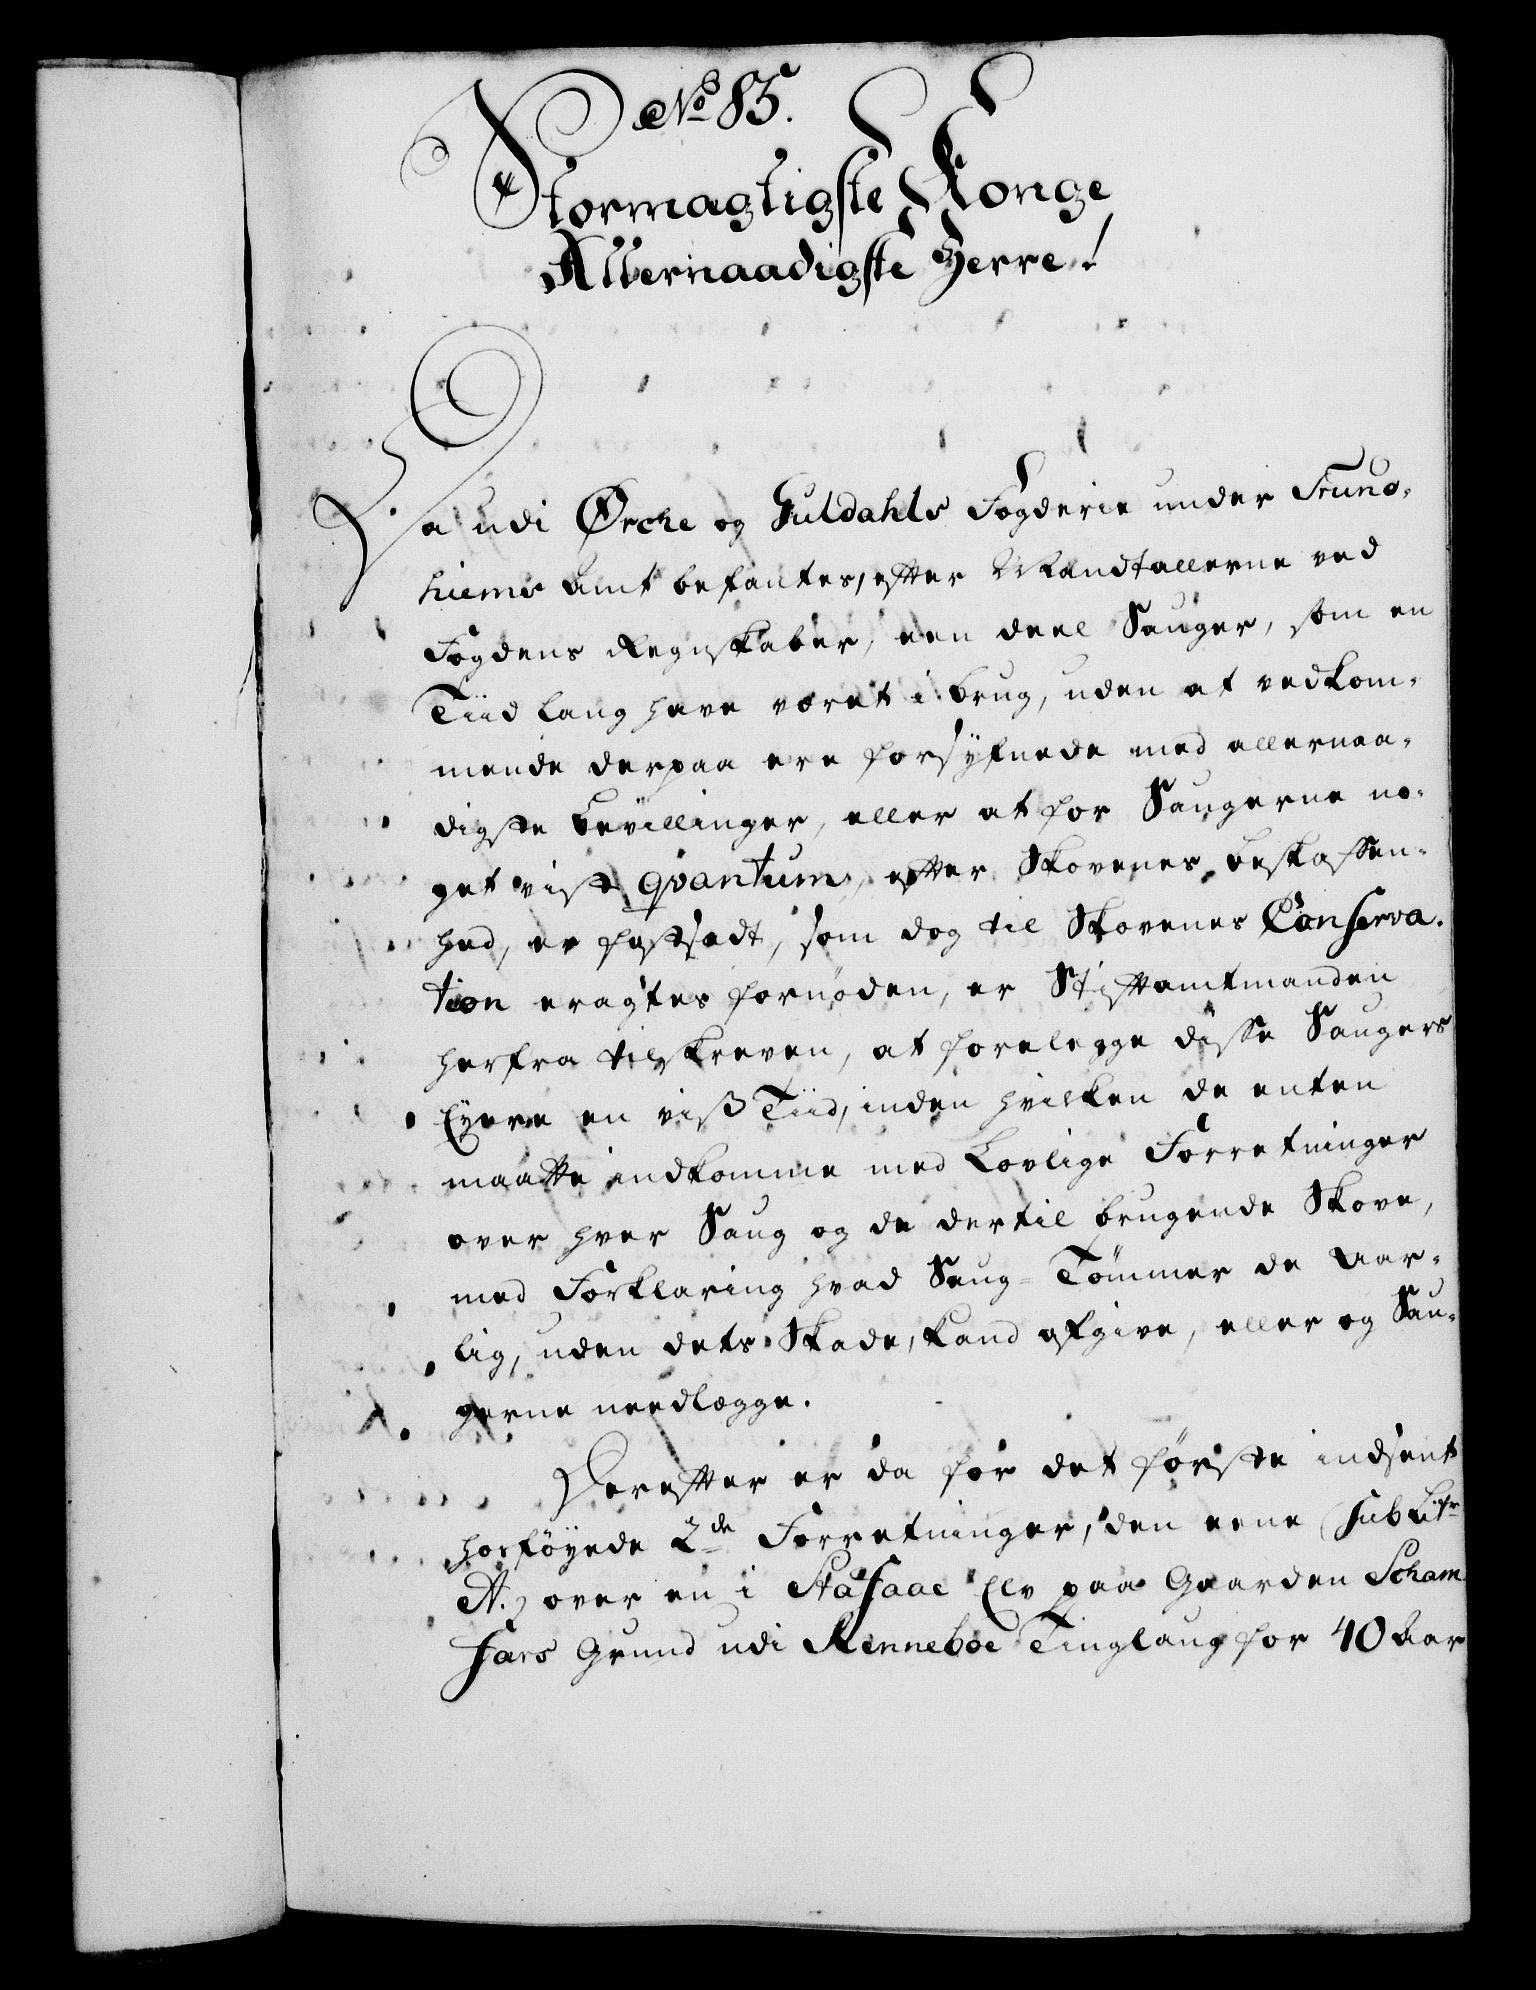 No 85.
Stormagtigste Konge
Allernaadigste Herre!
Da udi Ørche og Guldahls Fogderie under Trund-
hiems Amt befantes, efter Mandtallerne ved
Fogdens Regnskaber, een deel Sauger, som en
Tiid lang have været i brug, uden at vedkom-
mende derpaa ere forsÿfnede med allernaa-
digste bevillinger, eller at for Saugerne no-
get vist qvantum, efter Skovenes beskaffen-
hed, er fastsadt, som dog til Skovenes Conserva-
tion eragtes fornøden, er Stiftamtmanden
herfra tilskreven, at forelegge disse Saugers
Eyere en viss Tiid, inden hvilken de enten
maatte indkomme med Lovlige Forretninger
over hver Saug og de dertil brugende Skove,
med Forklaring hvad Saug-Tømmer de Aar-
lig, uden dets Skade, kand afgive, eller og Sau-
gerne needlægge.
Derefter er da for det første indsent
hosføyede 2de Forretninger, den eene (sub Litr
A.) over en i Stafaae Elv paa Gaarden Scham-
fars Grund udi Renneboe Tinglaug for 40 Aar